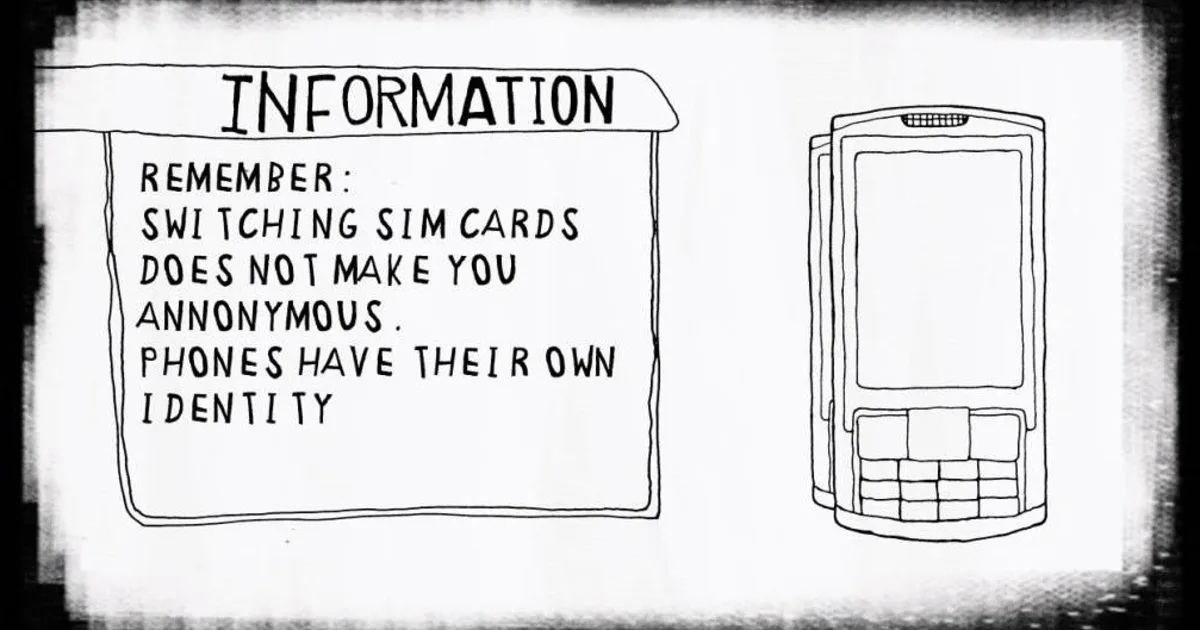 INFORMATION
REMEMBER:
SWITCHING SIM CARDS
DOES NOT MAKE YOU
ANNONYMOUS.
PHONES HAVE THEIR OWN
IDENTITY